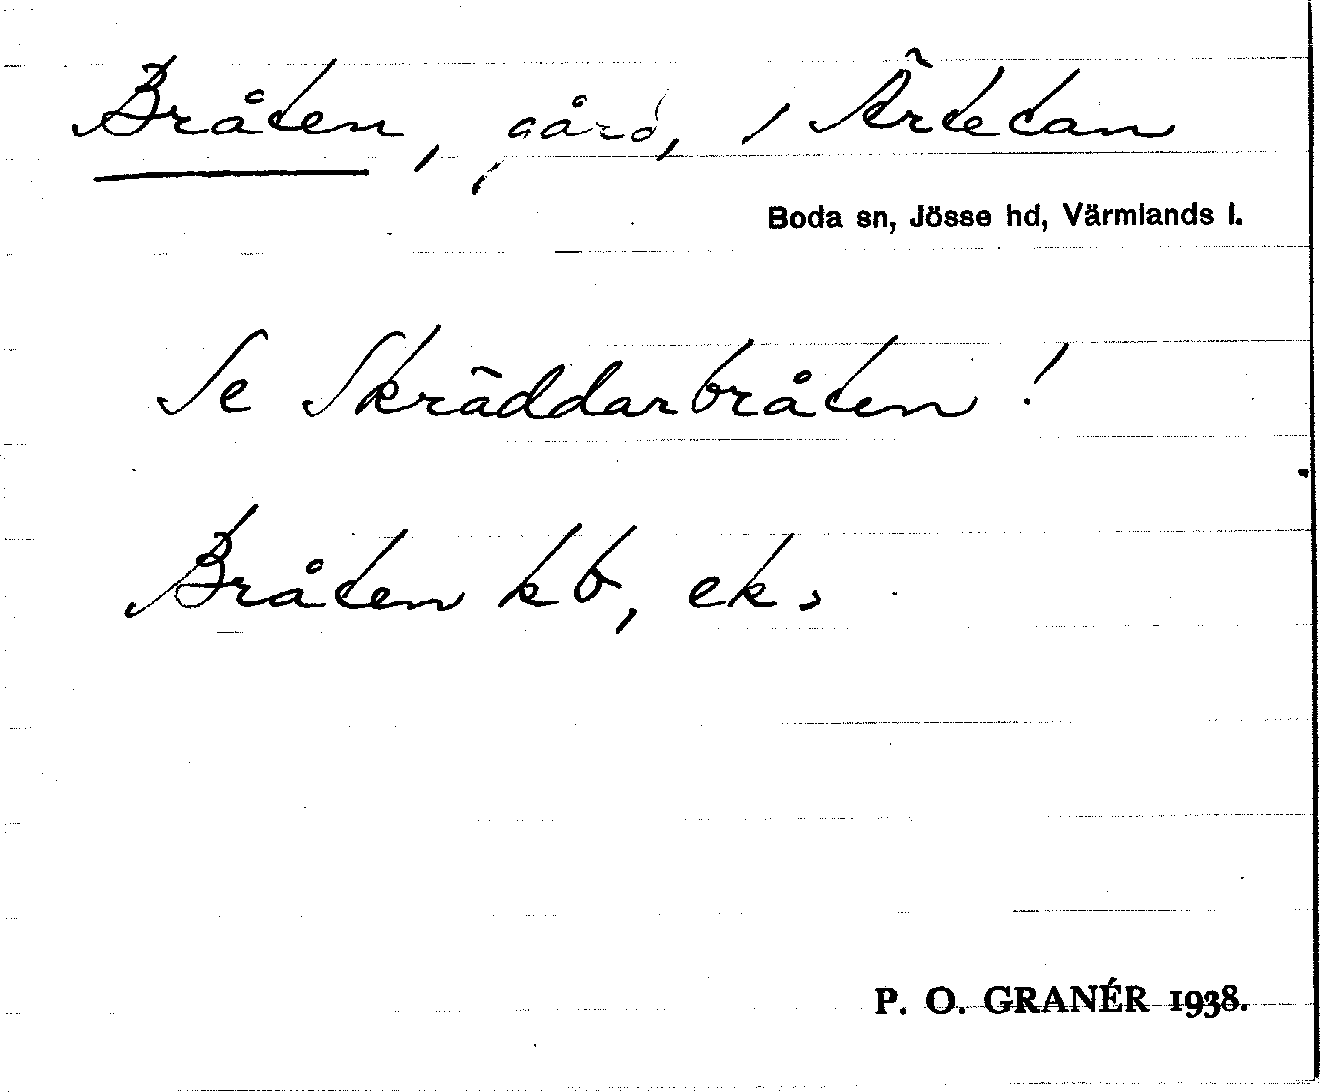 Bråten, gård, i Ärtetan
Boda sn, Jösse hd, Värmlands l.
Se Skräddarbråten!
Bråten kb, ek.
P. O. GRANÉR 1938.